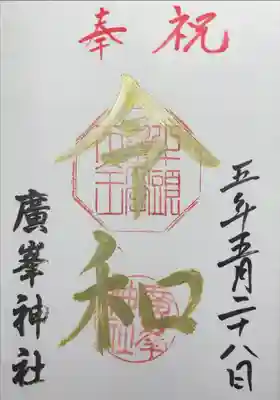 奉祝
令和
五年五月二十八日
廣峯神社